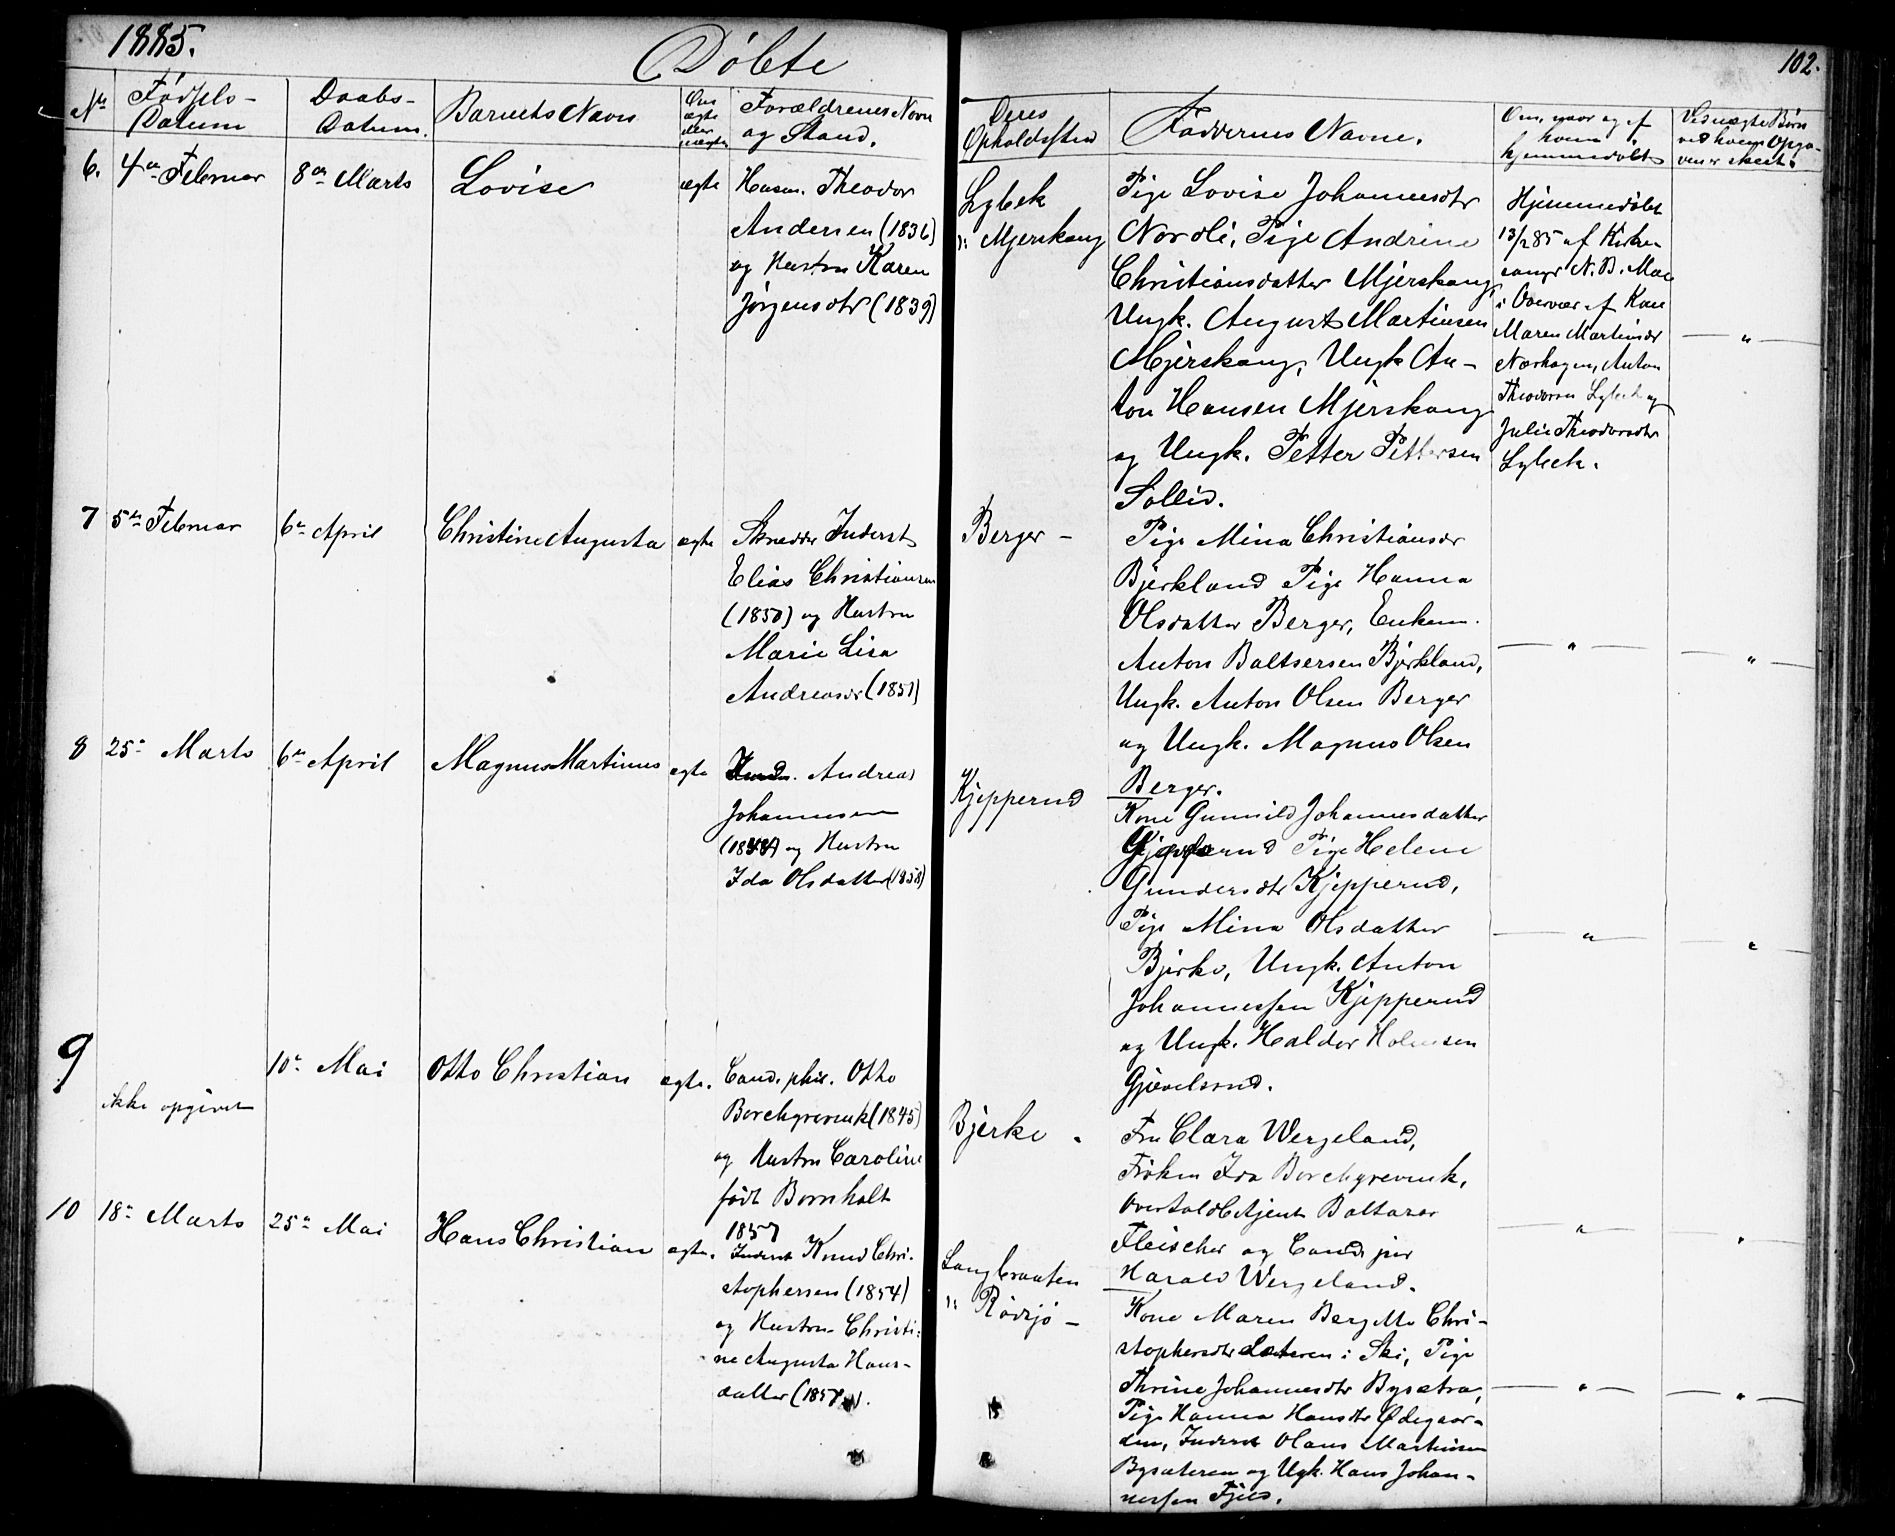 1885.
Döbte
102.
No
Födsels-
Datum
Daabs-
Datum.
Barnets Navn
Om
ægte
eller
uægte
Forældrenes Navn
og Stand.
Deres
Opholdssted
Faddernes Navne.
Om, naar og af
hvem
hjemmedöbt
Ved uægte Börn
ved hvem Opga-
ven er skeet.
6.
4de Februar
8de Marts
Lovise
ægte
Husm. Theodor
Andersen (1836)
og Hustru Karen
Jörgensdtr (1839)
Lybek
Mjerskaug
Pige Lovise Johannesdtr
Nordli, Pige Andrine
Christiansdatter Mjerskaug,
Ungk. August Martinsen
Mjerskaug, Ungk An-
ton Hansen Mjerskaug
og Ungk. Petter Pettersen
Sollid.
Hjemmedöbt
13/2 85 af Kirke
sanger N. B. Moe
i Overvær af Kone
Maren Martinsdr
Nærhagen, Anton
Theodorsen Lybek og
Julie Theodorsdtr
Lybek.
"
7
5te Februar
6te April
Christine Augusta
ægte
Skrædder Inderst
Elias Christiansen
(1850) og Hustru
Marie Lisa
Andreasdr (1851)
Berger -
Pige Mina Christiansdr
Bjerkland Pige Hanna
Olsdatter Berger, Enkem.
Anton Baltsersen Bjerkland,
Ungk. Anton Olsen Berger
og Ungk. Magnus Olsen
Berger.
"
"
8
25de Marts
6te April
Magnus Martinus
ægte
Andreas
Johannesen
og Hustru
Ida Olsdatter (1858)
Kjepperud
Kone Gunnild Johannesdatter
Pige Helene
Gundersdtr Kjepperud,
Pige Mina Olsdatter
Bjerke, Ungk. Anton
Johannessen Kjepperud
og Ungk. Haldor Halvorsen
Gjævelsrud.
"
"
9
ikke opgivet
10de Mai
Otto Christian
ægte.
Cand. phil. Otto
Borchgrevink (1845)
og Hustru Caroline
född Bornholt
1857
Bjerke -
Fru Clara Wergeland,
Fröken Ida Borchgrevink,
Baltazar
Fleischer og Cand. jur
Harald Wergeland.
"
"
10
18de Marts
25de Mai
Hans Christian
ægte.
Inderst Knud Chri-
stophersen (1854)
og Hustru Christi-
ne Augusta Hans-
datter
Langbraaten
Rödsjö -
Kone Maren Bergette Chri-
stophersdtr Sæteren i Ski, Pige
Thrine Johannesdtr Bysætra,
Pige Hanna Hansdtr Ödegaar-
den, Inderst Olaus Martinsen
Bysæteren og Ugk. Hans Johan-
nessen Fjeld.
"
"